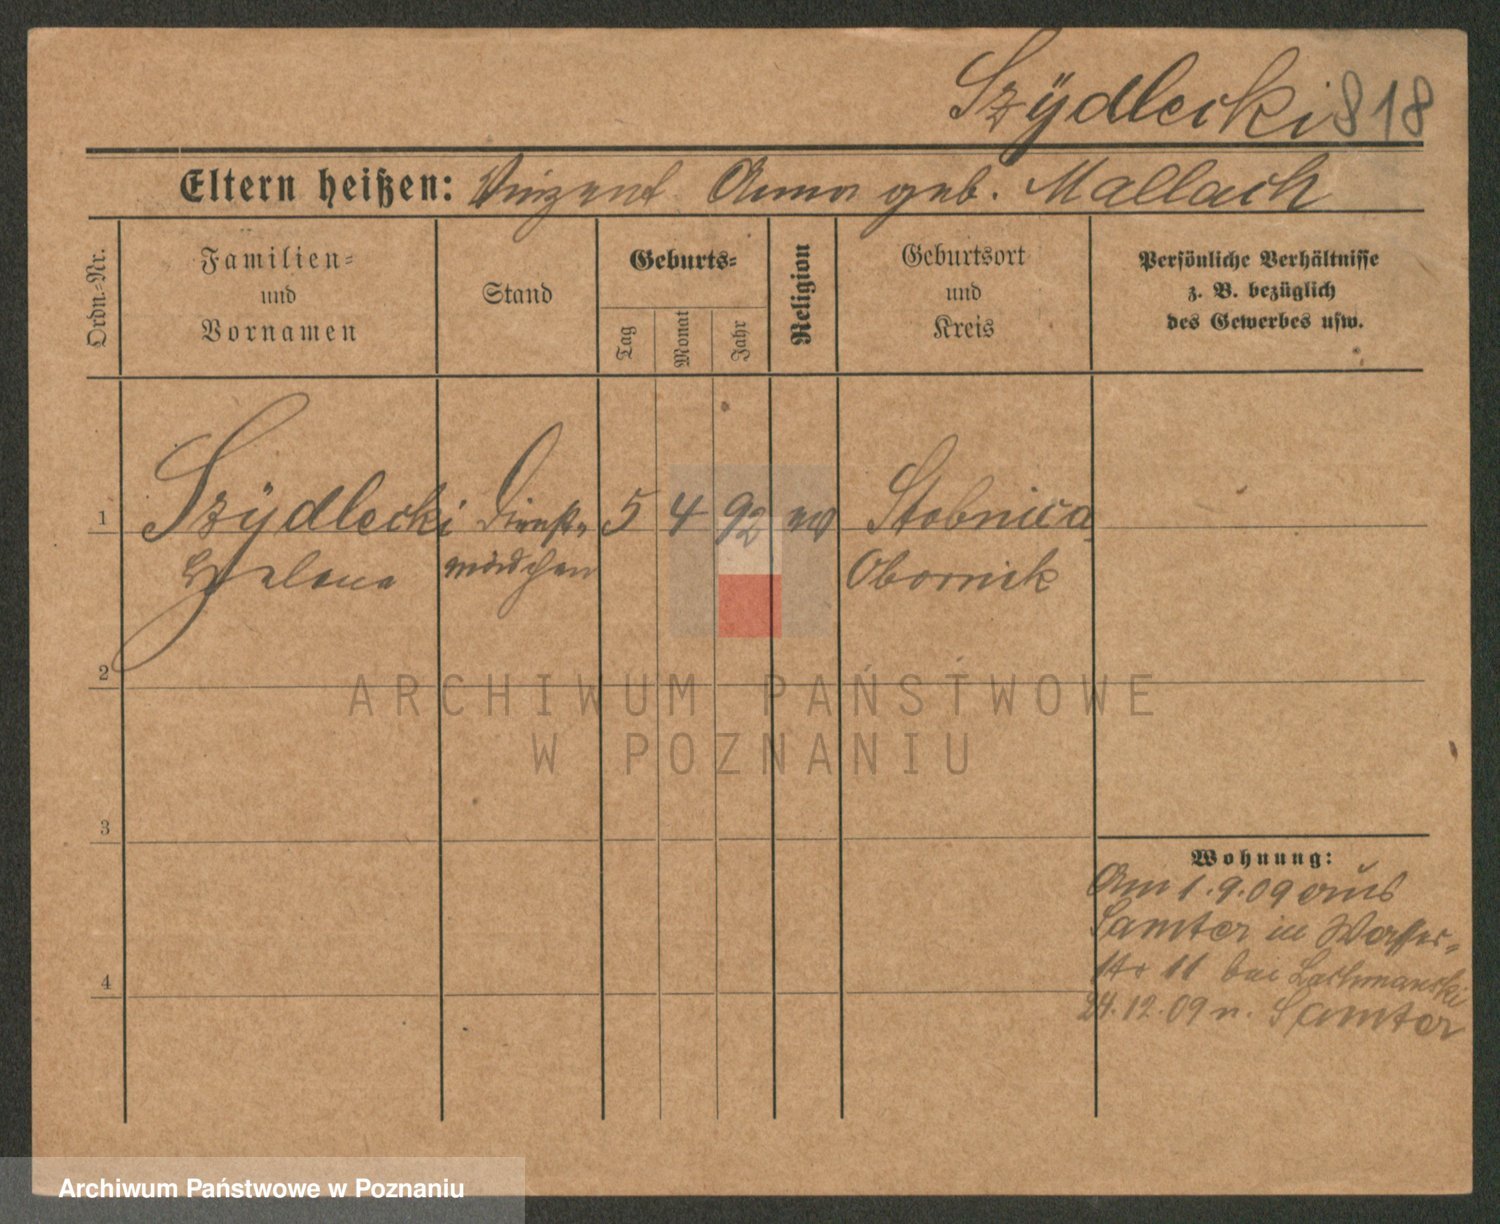 Szÿdlecki 818
Eltern heißen: Vinzent Anna geb. Mallach
Ordn.-Nr.
Familien-
und
Vornamen
Stand
Geburts-
Tag
Monat
Jahr
Religion
Geburtsort
und
Kreis
Persönliche Verhältnisse
z. B. bezüglich
des Gewerbes usw.
1 Szÿdlecki Dienst- 5 4 92 Stobnica
Helene mädchen Obornik
2
3
4
Wohnung:
Am 1.9.09 aus
Samter in Wasser-
str 11 bei Lachmanski
24.12.09 n. Samter
ARCHIWUM PAŃSTWOWE
W POZNANIU
Archiwum Państwowe w Poznaniu